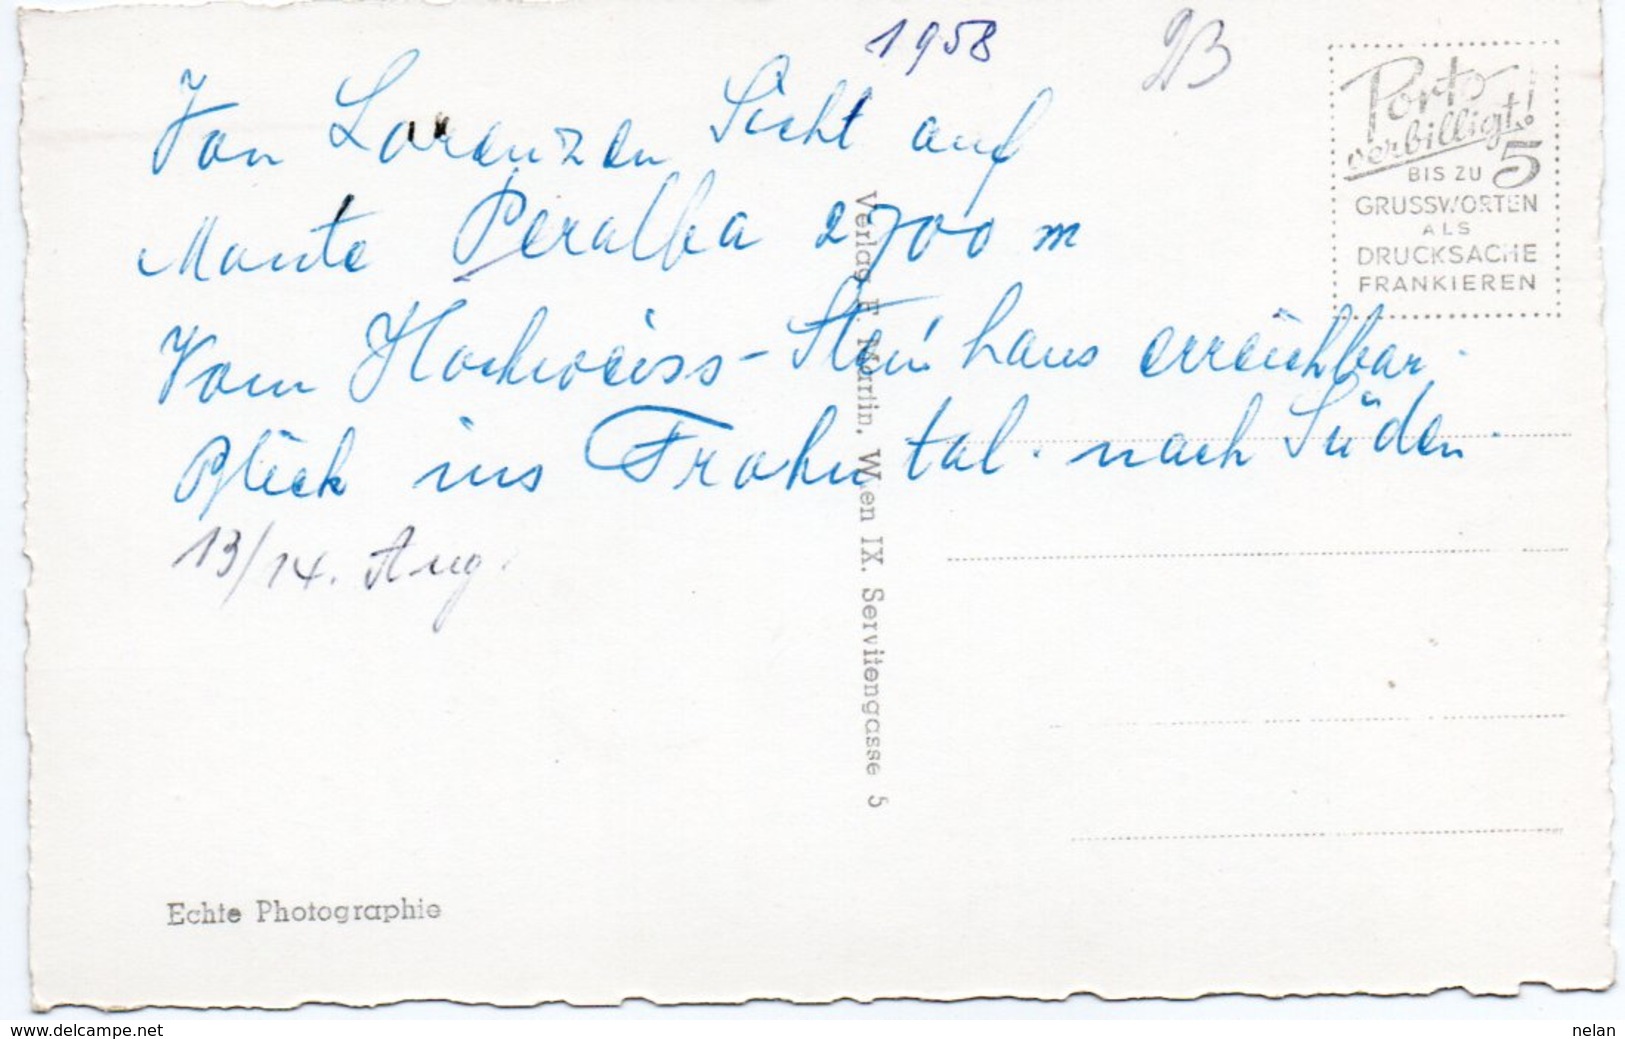 1958
Von Lorenzen Sicht auf
Monte Peralba 2700 m
Vom Hochweiss-Steinhaus erreichbar.
Blick ins Frohntal. nach Süden.
13/14. Aug.
Porto
verbilligt!
BIS ZU 5
GRUSSWORTEN
ALS
DRUCKSACHE
FRANKIEREN
Verlag F. Martin, Wien IX. Servitengasse 5
Echte Photographie
www.delcampe.net
nelan